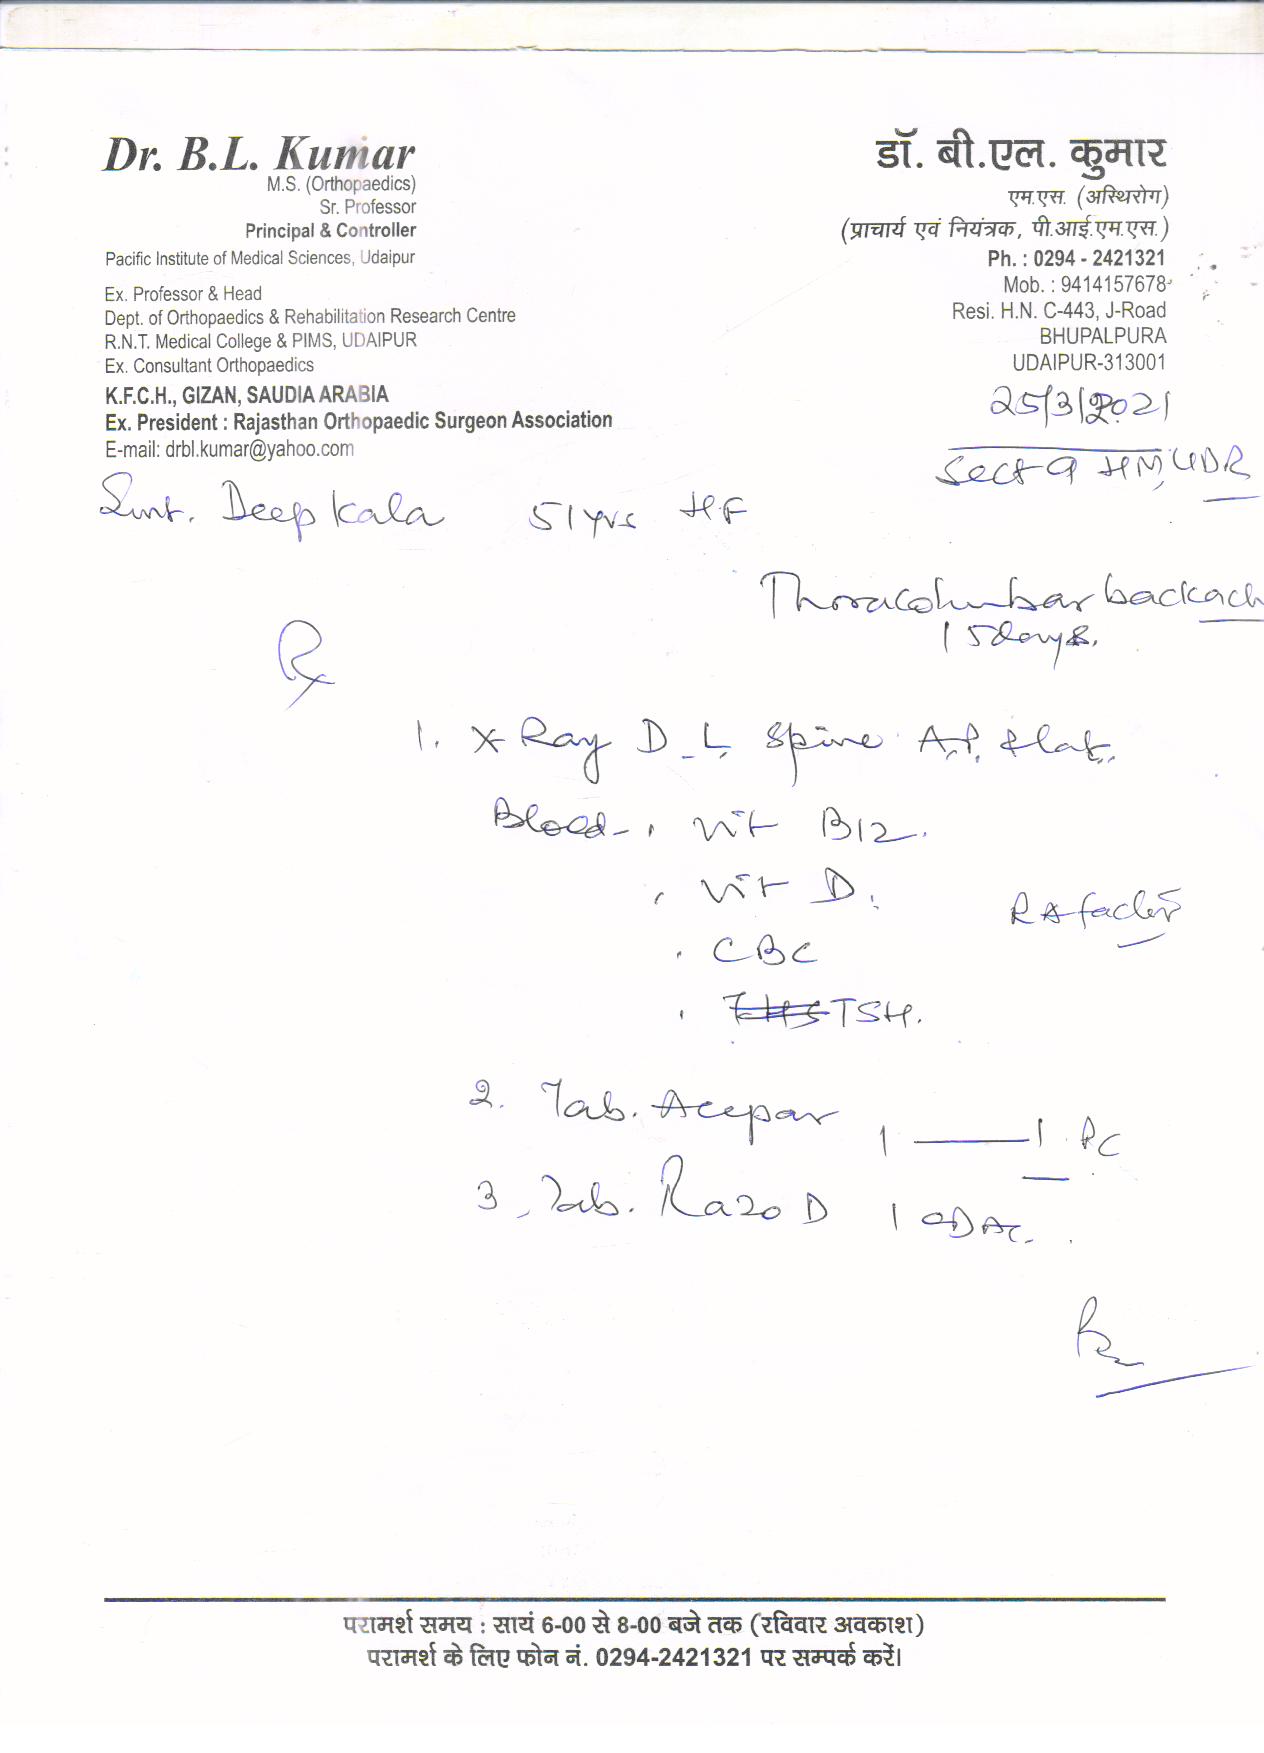 Dr. B.L. Kumar
M.S. (Orthopaedics)
Sr. Professor
Principal & Controller
Pacific Institute of Medical Sciences, Udaipur
Ex. Professor & Head
Dept. of Orthopaedics & Rehabilitation Research Centre
R.N.T. Medical College & PIMS, UDAIPUR
Ex. Consultant Orthopaedics
K.F.C.H., GIZAN, SAUDIA ARABIA
Ex. President : Rajasthan Orthopaedic Surgeon Association
E-mail: drbl.kumar@yahoo.com
डॉ. बी.एल. कुमार
एम.एस. (अस्थिरोग)
(प्राचार्य एवं नियंत्रक, पी.आई.एम.एस.)
Ph. : 0294 - 2421321
Mob. : 9414157678
Resi. H.N. C-443, J-Road
BHUPALPURA
UDAIPUR-313001
25/3/2021
Sect 9 HM, UDR
Smt. Deep Kala 51 yrs HF
Thoracolumbar backach
15 days.
Rx
1. X-Ray D-L Spine A.P. & Lat.
Blood - . Vit B12.
. Vit D.
RA factor
. CBC
. TSH.
2. Tab. Acepar 1 — 1 PC
3. Tab. Razo D 1 OD AC.
परामर्श समय : सायं 6-00 से 8-00 बजे तक (रविवार अवकाश)
परामर्श के लिए फोन नं. 0294-2421321 पर सम्पर्क करें।